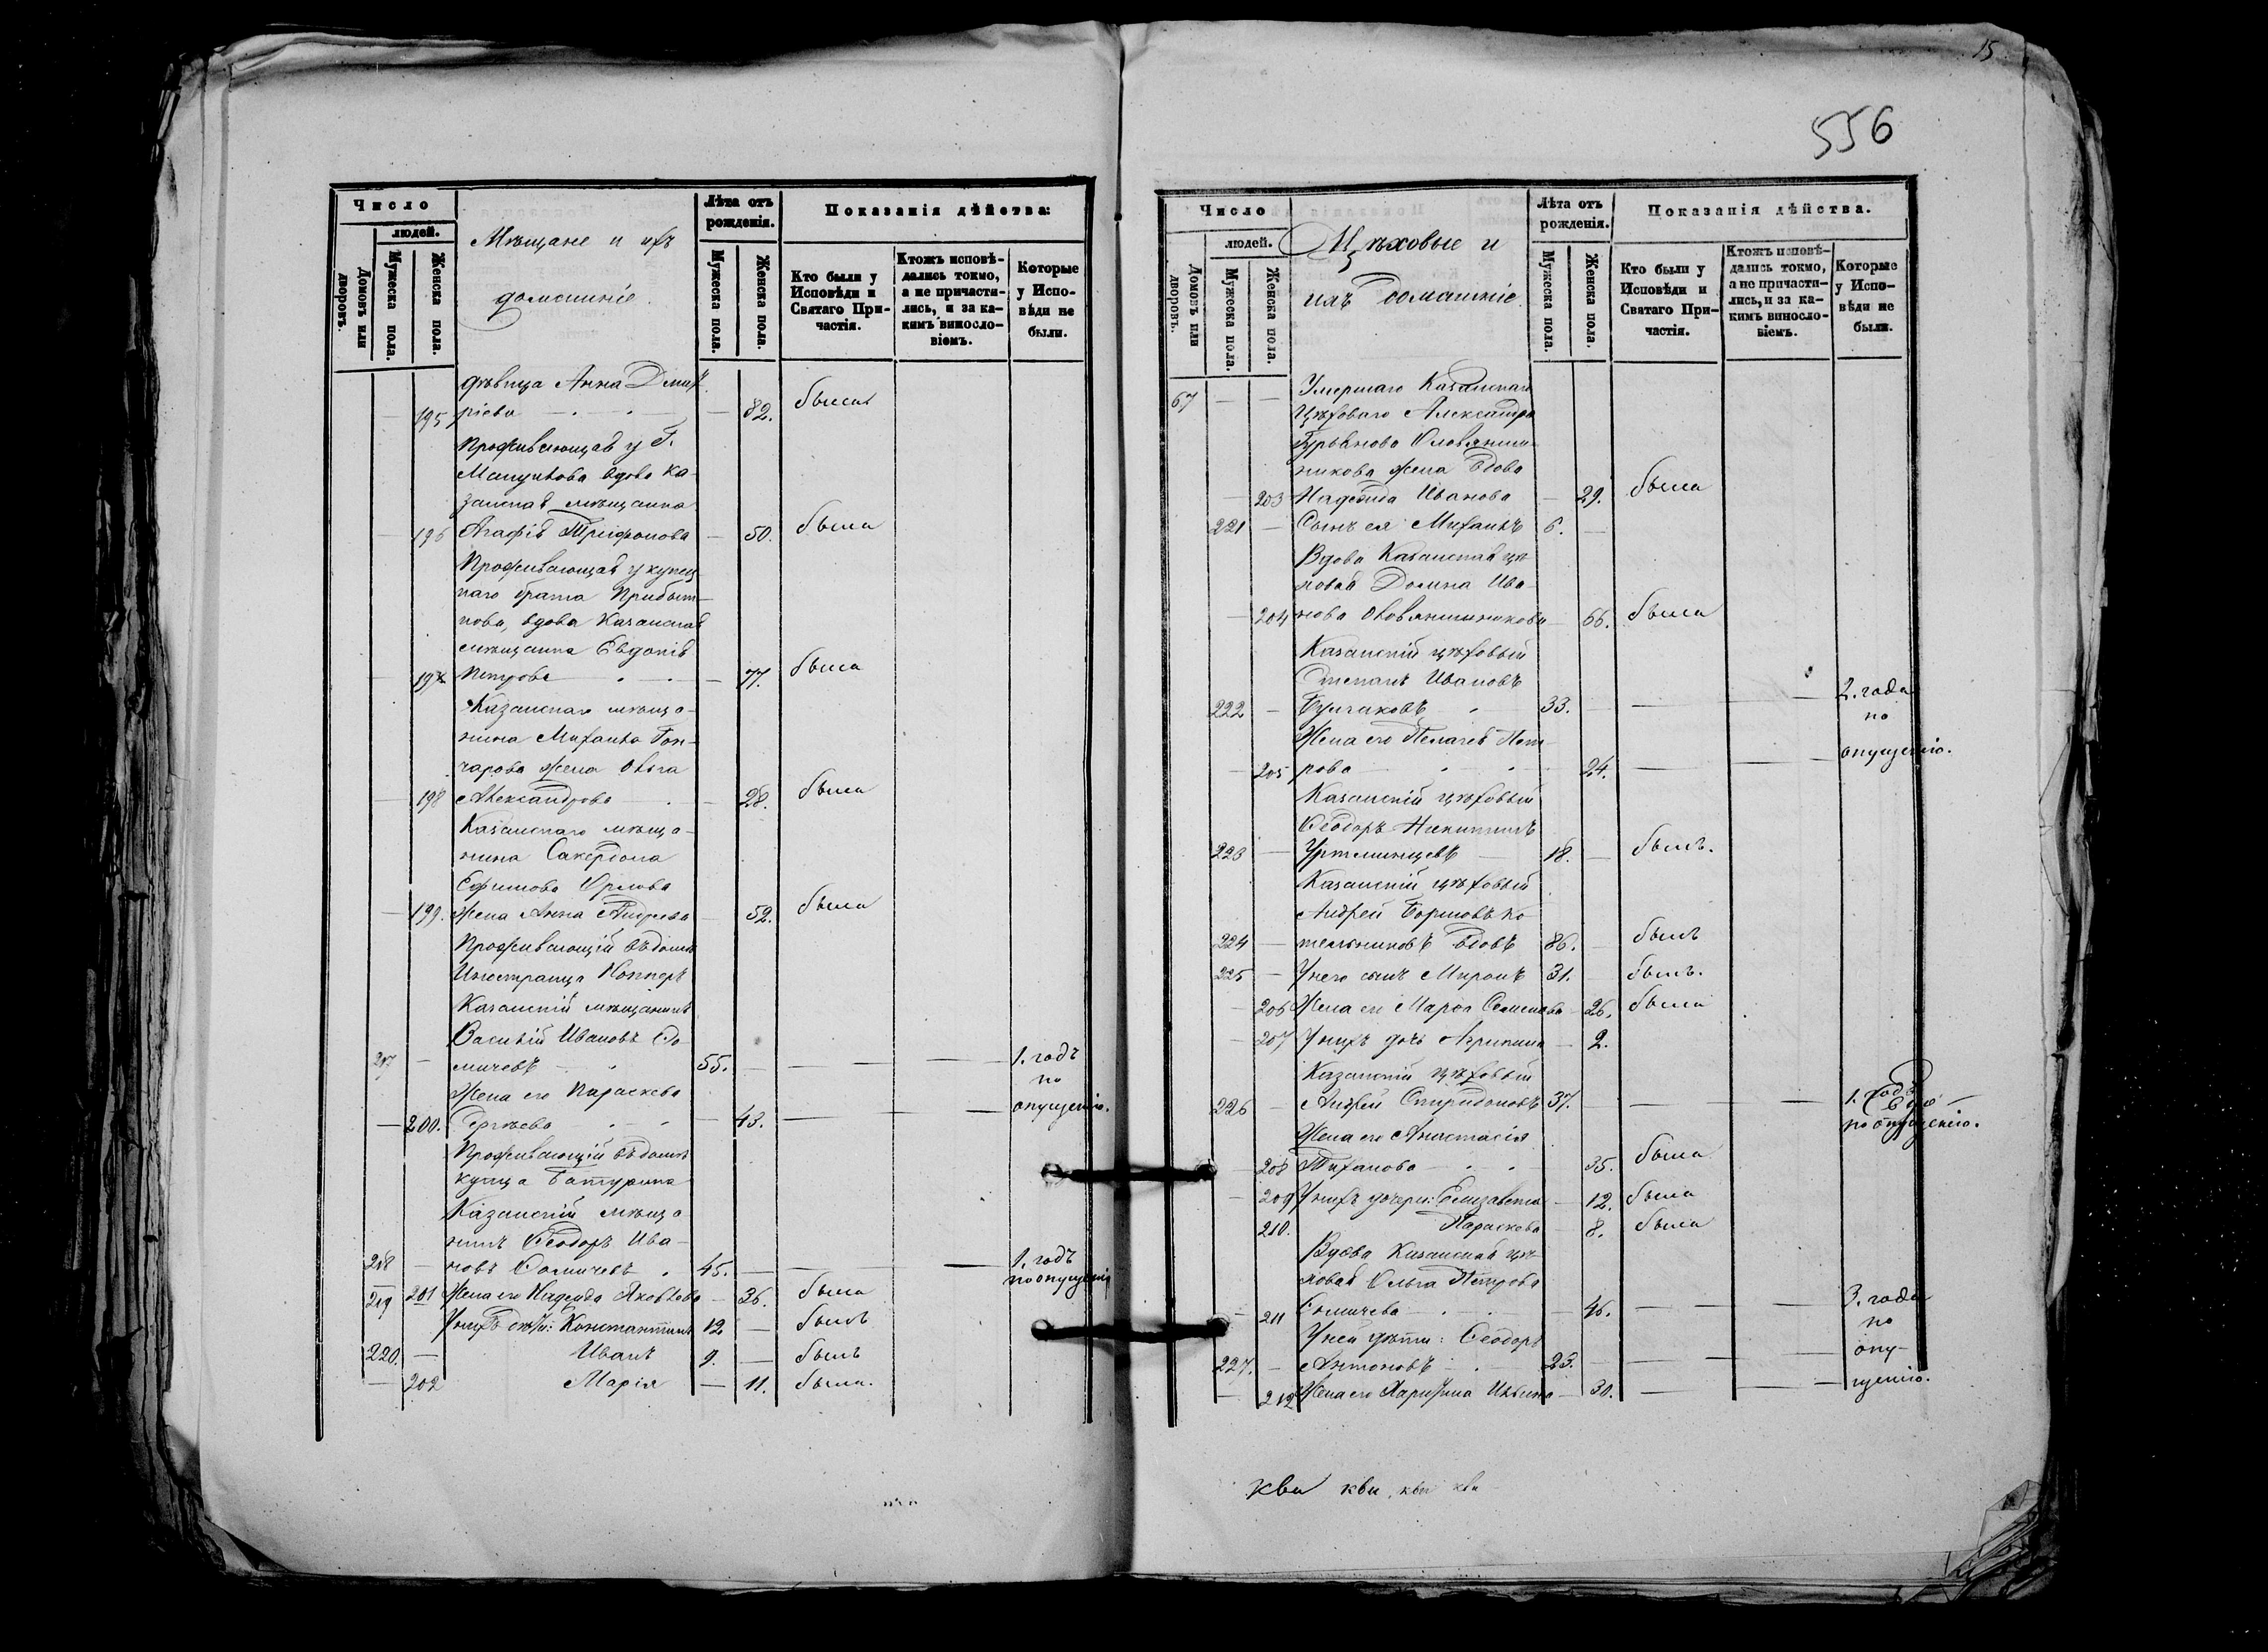 15
556
Число
людей.
Домовъ или дворовъ.
Мужеска пола.
Женска пола.
Мѣщане и ихъ
домашніе.
Лѣта отъ рожденія.
Мужеска пола.
Женска пола.
Показанія дѣйства:
Кто были у Исповѣди и Святаго Причастія.
Ктожъ исповѣдались токмо, а не причастились, и за какимъ винословіемъ.
Которые у Исповѣди не были.
дѣвица Анна Дмит
195 ріева — 82. была
Проживающая у Г.
вдова Ка-
занская мѣщанка
196 Агафія Трифонова — 50. была
Проживающая у купец
каго брата Прибыт-
кова, вдова Казанская
мѣщанка Евдокія
197 Петрова — 77. была
Казанскаго мѣща-
нина Михаила Гон-
чарова жена Ольга
198 Александрова — 28. была
Казанскаго мѣща-
нина Сакердона
Ефимова Орлова
199. жена Анна Андреева — 52. была
Проживающій въ домѣ
Иностранца
Казанскій мѣщанинъ
Василій Ивановъ Со-
217 — мичевъ 55. — — — 1. годъ
по
Жена его Параскева
— 200. Сергѣева — 43. — — опущенію.
Проживающій въ домѣ
купца Батурина
Казанскій мѣща-
нинъ Ѳеодоръ Ива-
218 — новъ Сомичевъ 45. — — 1. годъ
по опущенію
219 201 Жена его Надежда Яковлева — 36. была
У нихъ дѣти: Константинъ 12 — былъ
220. — Иванъ 9. — былъ
— 202 Марія — 11. была.
Число
людей.
Домовъ или дворовъ.
Мужеска пола.
Женска пола.
Цѣховые и
ихъ домашніе
Лѣта отъ рожденія.
Мужеска пола.
Женска пола.
Показанія дѣйства.
Кто были у Исповѣди и Святаго Причастія.
Ктожъ исповѣдались токмо, а не причастились, и за какимъ винословіемъ.
Которые у Исповѣди не были.
67 — — Умершаго Казанскаго
Цѣховаго Александра
Гурьянова Оловяниш-
никова жена вдова
— 203 Надежда Иванова — 29. была
221 — Сынъ ея Михаилъ 6. —
Вдова Казанская цѣ-
ховая Домна Ива-
— 204 нова Оловянишникова — 66. была
Казанскій цѣховый
Степанъ Ивановъ
222 — Булгаковъ 33. — — — 2. года
по
Жена его Пелагея Пет
— 205 рова 24. — — опущенію.
Казанскій цѣховый
Ѳеодоръ Никитинъ
223 — 18. — былъ.
Казанскій цѣховый
Андрей Борисовъ Ко
224 — тельниковъ вдовъ 86. — былъ
225 — У него сынъ Миронъ 31. былъ.
— 206 Жена его Марья Семенова — 26. была
— 207 У нихъ дочь Агрипина — 2.
Казанскій цѣховый
226 — Андрей Спиридоновъ 37. — — — 1. годъ
по опущенію.
Жена его Анастасія
— 208 Тиханова 35. была
— 209 У нихъ дочери: Елизавета — 12. была
210. Параскева — 8. была
Вдова Казанская цѣ-
ховая Ольга Петрова
— 211 Сомичева — 46. — — — 3. года
по
У ней дѣти: Ѳеодоръ
227. — Антоновъ 23. — — — опу-
— 212 Жена его Харитина Ильина — 30. — — щенію.
кви кви, кви кви